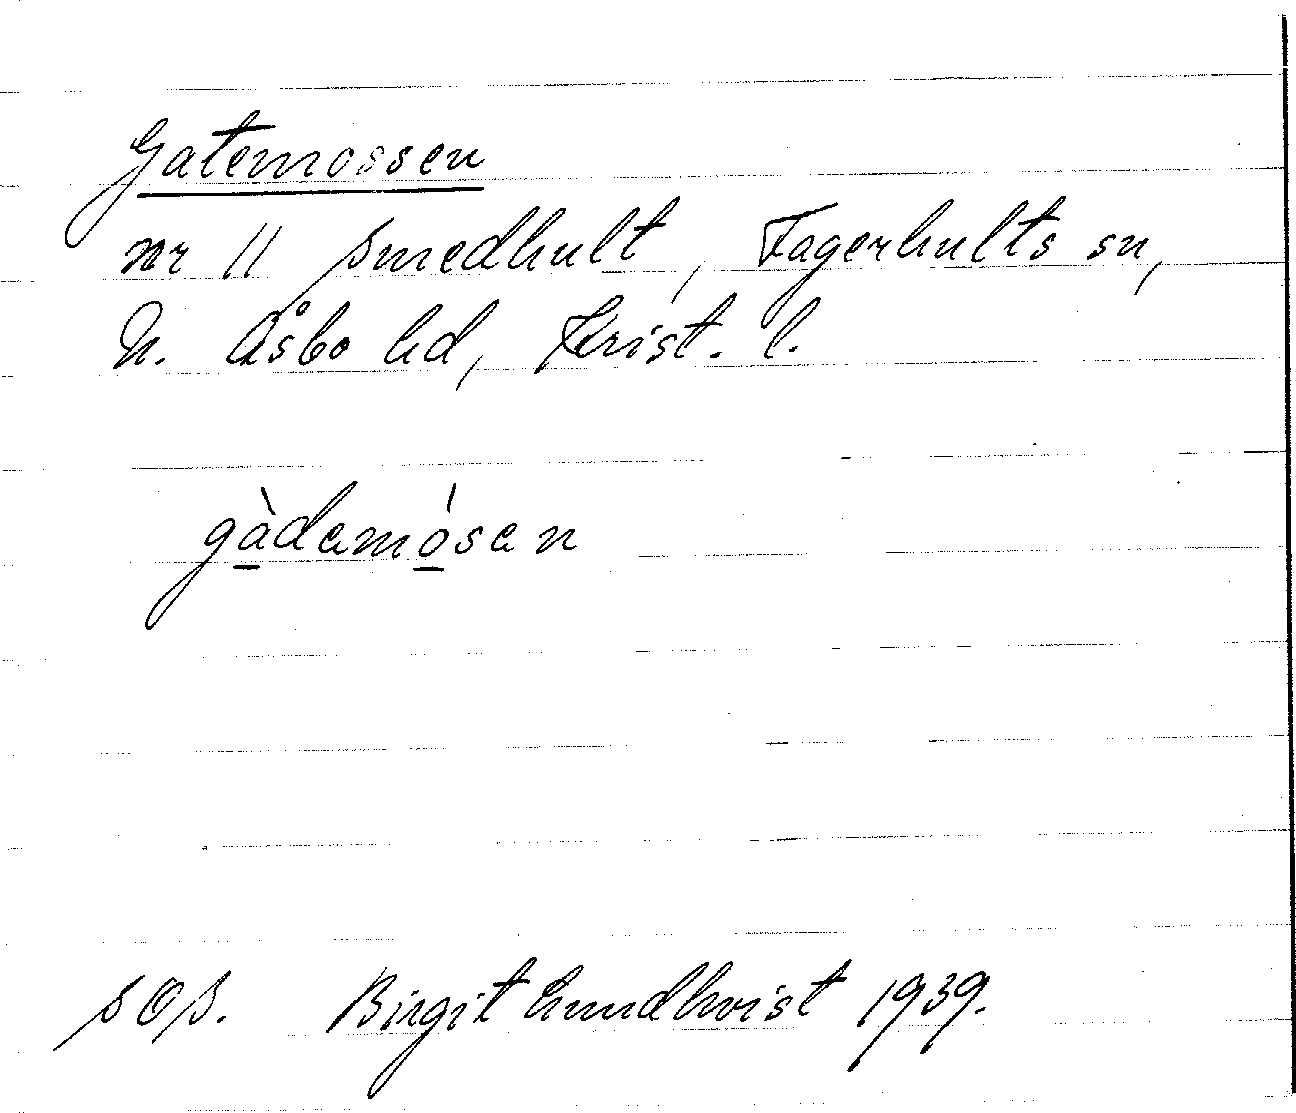 Gatemossen
nr 11 Smedhult, Fagerhults sn,
N. Åsbo hd, Krist. l.
gàdamósan
SOS. Birgit Lundkvist 1939.